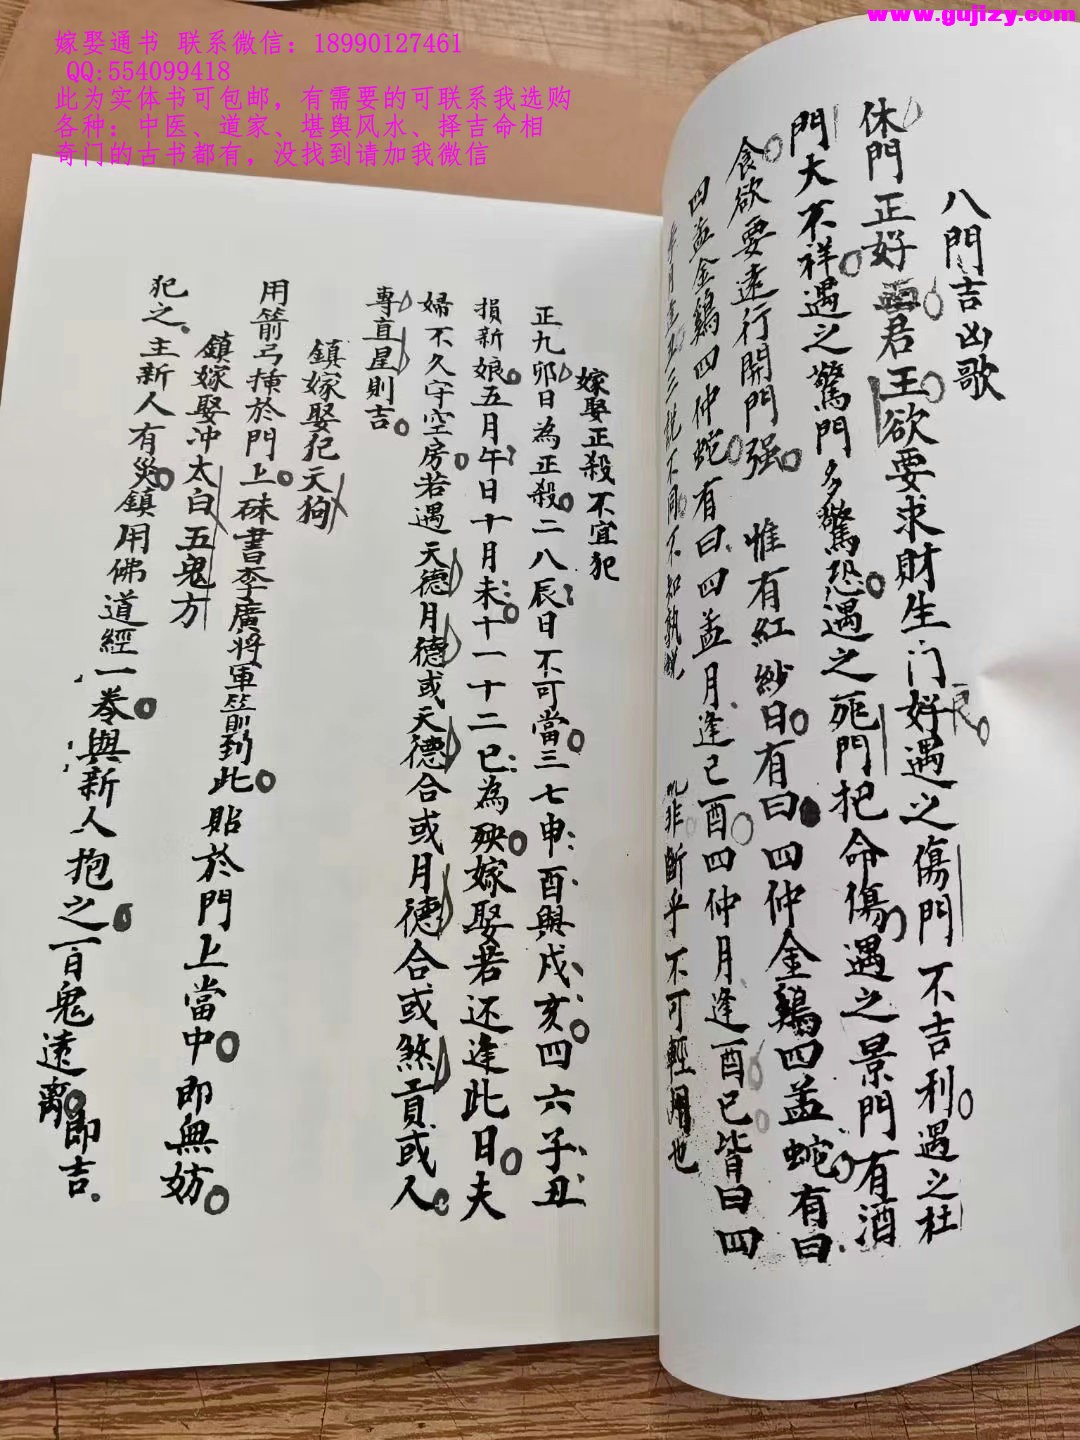 www.gujizy.com
嫁娶通书 联系微信：18990127461
QQ:554099418
此为实体书可包邮，有需要的可联系我选购
各种：中医、道家、堪舆风水、择吉命相
奇门的古书都有，没找到请加我微信
八門吉凶歌
休門正好君王欲要求財生门好遇之傷門不吉利遇之杜
門大不祥遇之驚門多驚恐遇之死門把命傷遇之景門有酒
食欲要遠行開門强 惟有紅紗日有曰四仲金鷄四孟蛇有曰
四孟金鷄四仲蛇有曰四孟月逢己酉四仲月逢酉巳皆曰四
三説不同不知孰 非斷乎不可輕用也
嫁娶正殺不宜犯
正九卯日為正殺二八辰日不可當三七申酉與戌亥四六子丑
損新娘五月午日十月未十一十二巳為殃嫁娶若还逢此日夫
婦不久守空房若遇天德月德或天德合或月德合或煞貢或人
專直星則吉
鎮嫁娶犯天狗
用箭弓掛於門上硃書李廣將軍箭到此貼於門上當中即無妨
鎮嫁娶冲太白五鬼方
犯之主新人有災鎮用佛道經一卷與新人抱之百鬼遠离即吉